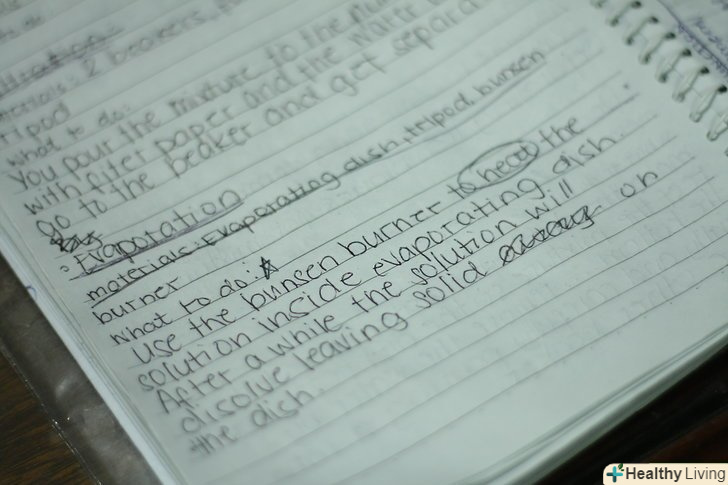 2 beakers,
tripod
what to do:
You pour the mixture to the
with filter paper and the water
go to the beaker and get separa
: Evaporation
materials: Evaporating dish, tripod, bunsen
burner
what to do:
use the bunsen burner to heat the
solution inside evaporating dish.
After a while the solution will
disolve leaving solid on
the dish.
Healthy Living